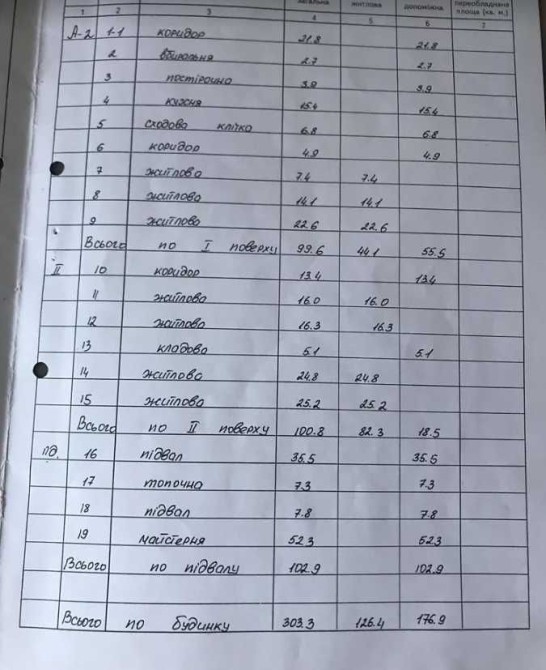 загальна житлова допоміжна переобладнана площа (кв. м.)
1 2 3 4 5 6 7
А-2 1-1 коридор 21.8 21.8
2 вбиральня 2.7 2.7
3 постірочна 3.9 3.9
4 кухня 15.4 15.4
5 сходова клітка 6.8 6.8
6 коридор 4.9 4.9
7 житлова 7.4 7.4
8 житлова 14.1 14.1
9 житлова 22.6 22.6
Всього по I поверху 99.6 44.1 55.5
II 10 коридор 13.4 13.4
11 житлова 16.0 16.0
12 житлова 16.3 16.3
13 кладова 5.1 5.1
14 житлова 24.8 24.8
15 житлова 25.2 25.2
Всього по II поверху 100.8 82.3 18.5
пд. 16 підвал 35.5 35.5
17 топочна 7.3 7.3
18 підвал 7.8 7.8
19 майстерня 52.3 52.3
Всього по підвалу 102.9 102.9
Всього по будинку 303.3 126.4 176.9